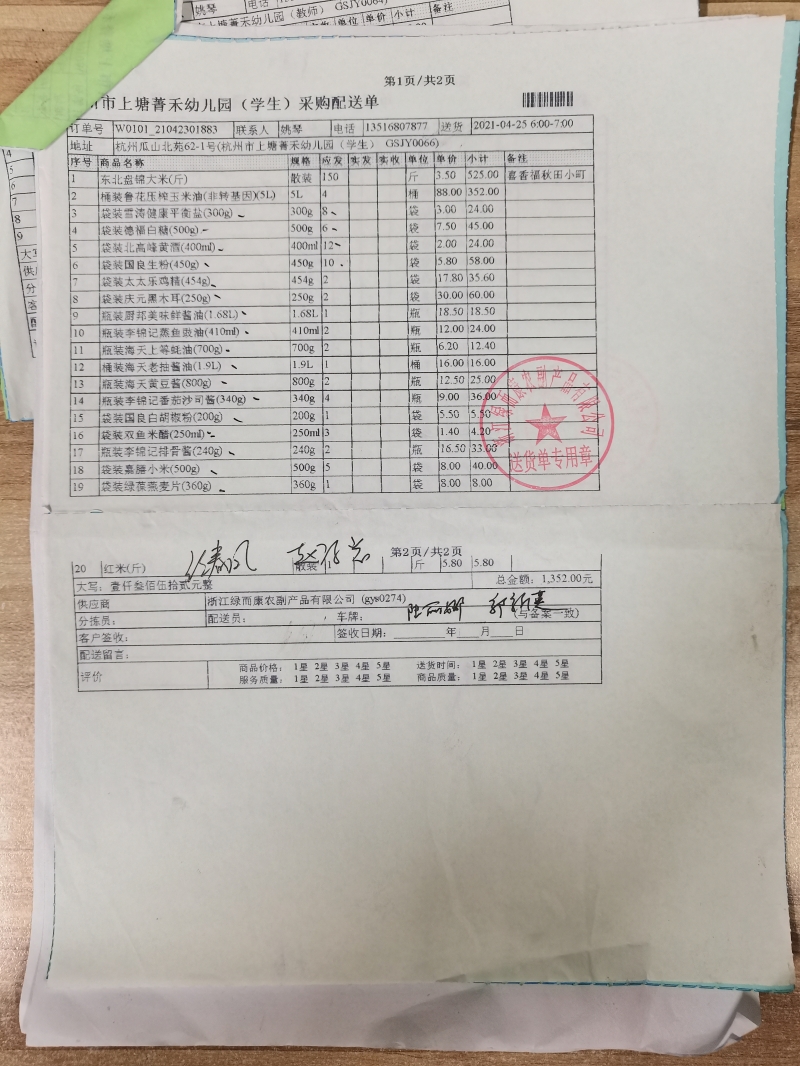 姚琴 电话
上塘菁禾幼儿园（教师） GSJY0064)
单位 单价 小计 备注
第1页/共2页
州市上塘菁禾幼儿园（学生）采购配送单
订单号 W0101_21042301883 联系人 姚琴 电话 13516807877 送货 2021-04-25 6:00-7:00
地址 杭州瓜山北苑62-1号(杭州市上塘菁禾幼儿园（学生） GSJY0066)
序号 商品名称 规格 应发 实发 实收 单位 单价 小计 备注
1 东北盘锦大米(斤) 散装 150 斤 3.50 525.00 喜香福秋田小町
2 桶装鲁花压榨玉米油(非转基因)(5L) 5L 4 桶 88.00 352.00
3 袋装雪涛健康平衡盐(300g) 300g 8 袋 3.00 24.00
4 袋装德福白糖(500g) 500g 6 袋 7.50 45.00
5 袋装北高峰黄酒(400ml) 400ml 12 袋 2.00 24.00
6 袋装国良生粉(450g) 450g 10 袋 5.80 58.00
7 袋装太太乐鸡精(454g) 454g 2 袋 17.80 35.60
8 袋装庆元黑木耳(250g) 250g 2 袋 30.00 60.00
9 瓶装厨邦美味鲜酱油(1.68L) 1.68L 1 瓶 18.50 18.50
10 瓶装李锦记蒸鱼豉油(410ml) 410ml 2 瓶 12.00 24.00
11 瓶装海天上等蚝油(700g) 700g 2 瓶 6.20 12.40
12 桶装海天老抽酱油(1.9L) 1.9L 1 桶 16.00 16.00
13 瓶装海天黄豆酱(800g) 800g 2 瓶 12.50 25.00
14 瓶装李锦记番茄沙司酱(340g) 340g 4 瓶 9.00 36.00
15 袋装国良白胡椒粉(200g) 200g 1 袋 5.50 5.50
16 袋装双鱼米醋(250ml) 250ml 3 袋 1.40 4.20
17 瓶装李锦记排骨酱(240g) 240g 2 瓶 16.50 33.00
18 袋装嘉膳小米(500g) 500g 5 袋 8.00 40.00
19 袋装绿葆燕麦片(360g) 360g 1 袋 8.00 8.00
送货单专用章
第2页/共2页
20 红米(斤) 散装 1 斤 5.80 5.80
大写：壹仟叁佰伍拾贰元整 总金额：1,352.00元
供应商 浙江绿而康农副产品有限公司 (gys0274)
分拣员： 配送员： 车牌： (与备案一致)
客户签收： 签收日期： 年 月 日
配送留言：
评价 商品价格： 1星 2星 3星 4星 5星 送货时间： 1星 2星 3星 4星 5星
服务质量： 1星 2星 3星 4星 5星 商品质量： 1星 2星 3星 4星 5星